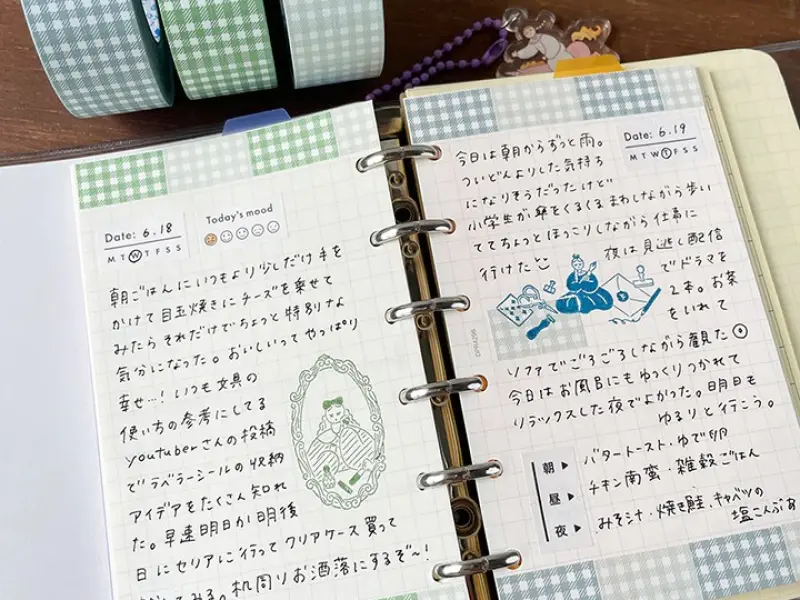 Date: 6.18
M T W T F S S
Today's mood
朝ごはんにいつもより少しだけ手を
かけて目玉焼きにチーズを乗せて
みたらそれだけでちょっと特別な
気分になった。おいしいってやっぱり
幸せ…！いつも文具の
使いちの参考にしてる
youtuberさんの投稿
でラベラーシールの収納
アイデアをたくさん知れ
た。早速明日か明後
日にセリアに行ってクリアケース買って
してみる。机周りお洒落にするぞ〜！
Date: 6.19
M T W T F S S
今日は朝からずっと雨。
ついどんよりした気持ち
になりそうだったけど
小学生が傘をくるくるまわしながら歩い
ててちょっとほっこりしながら仕事に
行けた
夜は見逃し配信
でドラマを
2本。お茶
をいれて
ソファでごろごろしながら観た
今日はお風呂にもゆっくりつかれて
リラックスした夜でよかった。明日も
ゆるりと行こう。
朝 ▶ バタートースト・ゆで卵
昼 ▶ チキン南蛮・雑穀ごはん
夜 ▶ みそ汁・焼き鮭、キャベツの
塩こんぶあ